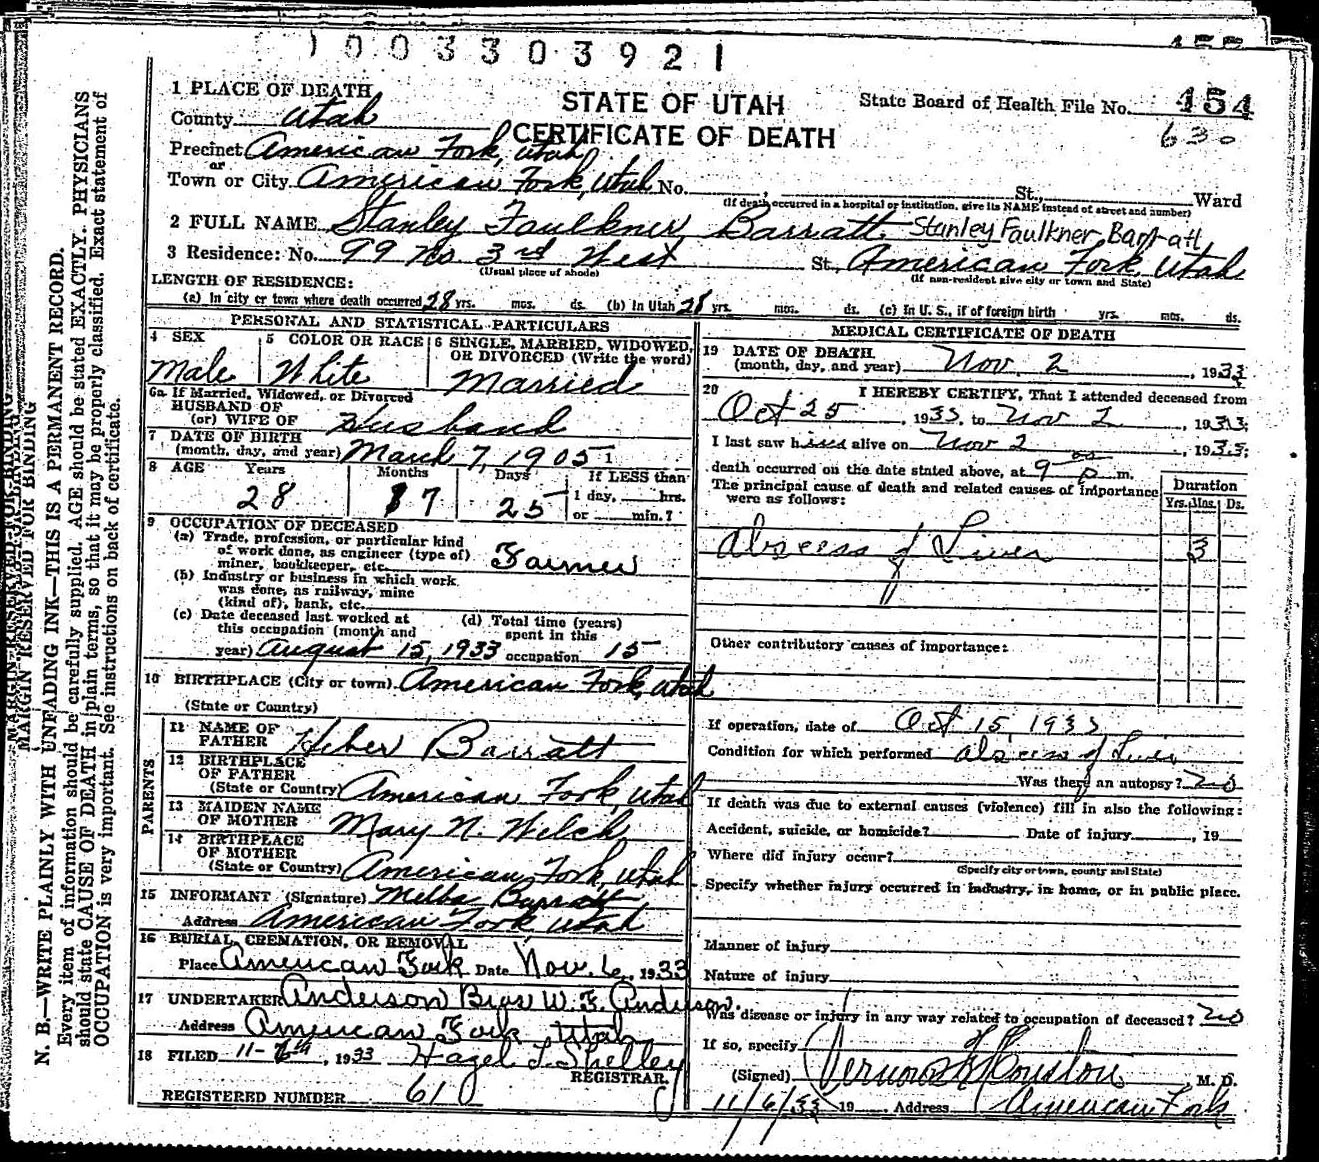 1003303921
STATE OF UTAH
CERTIFICATE OF DEATH
State Board of Health File No. 454
630
1 PLACE OF DEATH
County Utah
Precinct American Fork, Utah
or
Town or City American Fork, Utah No. , St., Ward
(If death occurred in a hospital or institution, give its NAME instead of street and number)
2 FULL NAME Stanley Faulkner Barratt Stanley Faulkner Barratt
3 Residence: No. 99 No 3rd West St. American Fork, Utah
(Usual place of abode) (If non-resident give city or town and State)
LENGTH OF RESIDENCE:
(a) In city or town where death occurred 28 yrs. mos. ds. (b) In Utah 28 yrs. mos. ds. (c) In U. S., if of foreign birth yrs. mos. ds.
PERSONAL AND STATISTICAL PARTICULARS
4 SEX
Male
5 COLOR OR RACE
White
6 SINGLE, MARRIED, WIDOWED, OR DIVORCED (Write the word)
Married
6a If Married, Widowed, or Divorced
HUSBAND OF
(or) WIFE OF Husband
7 DATE OF BIRTH
(month, day, and year) March 7, 1905
8 AGE Years Months Days If LESS than
28 7 25 1 day, hrs.
or min.?
9 OCCUPATION OF DECEASED
(a) Trade, profession, or particular kind
of work done, as engineer (type of)
miner, bookkeeper, etc. Farmer
(b) Industry or business in which work
was done, as railway, mine
(kind of), bank, etc.
(c) Date deceased last worked at
this occupation (month and
year) August 15, 1933
(d) Total time (years)
spent in this
occupation 15
10 BIRTHPLACE (City or town) American Fork, Utah
(State or Country)
PARENTS
11 NAME OF
FATHER Heber Barratt
12 BIRTHPLACE
OF FATHER
(State or Country) American Fork, Utah
13 MAIDEN NAME
OF MOTHER Mary N. Welch
14 BIRTHPLACE
OF MOTHER
(State or Country) American Fork, Utah
15 INFORMANT (Signature) Melba Barratt
Address American Fork Utah
16 BURIAL, CREMATION, OR REMOVAL
Place American Fork Date Nov. 6, 1933
17 UNDERTAKER Anderson Bros W. F. Anderson.
Address American Fork Utah
18 FILED 11- , 1933 Hazel L. Shelley
REGISTRAR.
REGISTERED NUMBER 61
MEDICAL CERTIFICATE OF DEATH
19 DATE OF DEATH
(month, day, and year) Nov. 2 , 1933
20 I HEREBY CERTIFY, That I attended deceased from
Oct 25 , 1933, to Nov 2 , 1933;
I last saw him alive on Nov 2 , 1933;
death occurred on the date stated above, at 9 00 p m.
The principal cause of death and related causes of importance
were as follows:
Duration
Yrs. Mos. Ds.
Abscess of Liver 3
Other contributory causes of importance:
If operation, date of Oct 15, 1933
Condition for which performed abscess of Liver
Was there an autopsy? no
If death was due to external causes (violence) fill in also the following:
Accident, suicide, or homicide? Date of injury , 19
Where did injury occur?
(Specify city or town, county and State)
Specify whether injury occurred in industry, in home, or in public place.
Manner of injury
Nature of injury
Was disease or injury in any way related to occupation of deceased? no
If so, specify
(Signed) Vernon F Houston , M. D.
11/6/33 19 Address American Fork
MARGIN RESERVED FOR BINDING
N. B.—WRITE PLAINLY WITH UNFADING INK—THIS IS A PERMANENT RECORD.
Every item of information should be carefully supplied. AGE should be stated EXACTLY. PHYSICIANS
should state CAUSE OF DEATH in plain terms, so that it may be properly classified. Exact statement of
OCCUPATION is very important. See instructions on back of certificate.